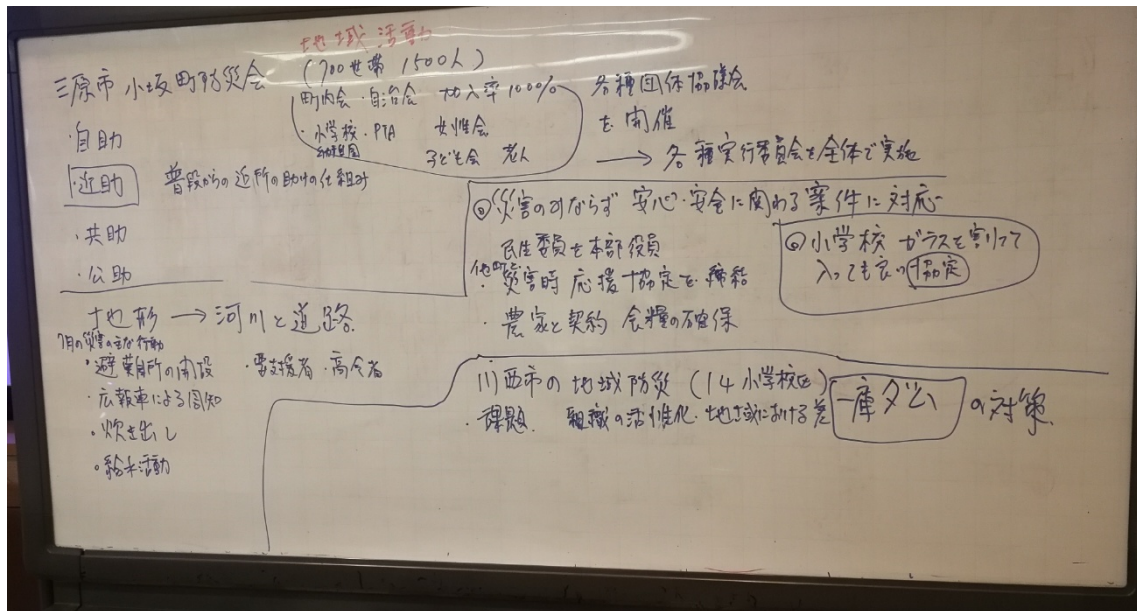 地域活動
三原市 小坂町防災会
(700世帯 1500人)
町内会・自治会 加入率100%
・小学校・PTA 女性会
幼稚園
子ども会 老人
各種団体協議会
を開催
→ 各種実行委員会を全体で実施
・自助
・近助 普段からの近所の助けの仕組み
・共助
・公助
◎災害のみならず 安心・安全に関わる案件に対応
民生委員を本部役員
他町と
・災害時 応援協定を締結
・農家と契約 食糧の確保
◎小学校 ガラスを割って
入っても良い 協定
地形 → 河川と道路
7月の災害の主な行動
・避難所の開設 ・要支援者・高令者
・広報車による周知
・炊き出し
・給水活動
川西市の地域防災 (14小学校区)
・課題 組織の活性化・地域における差
一庫ダム の対策